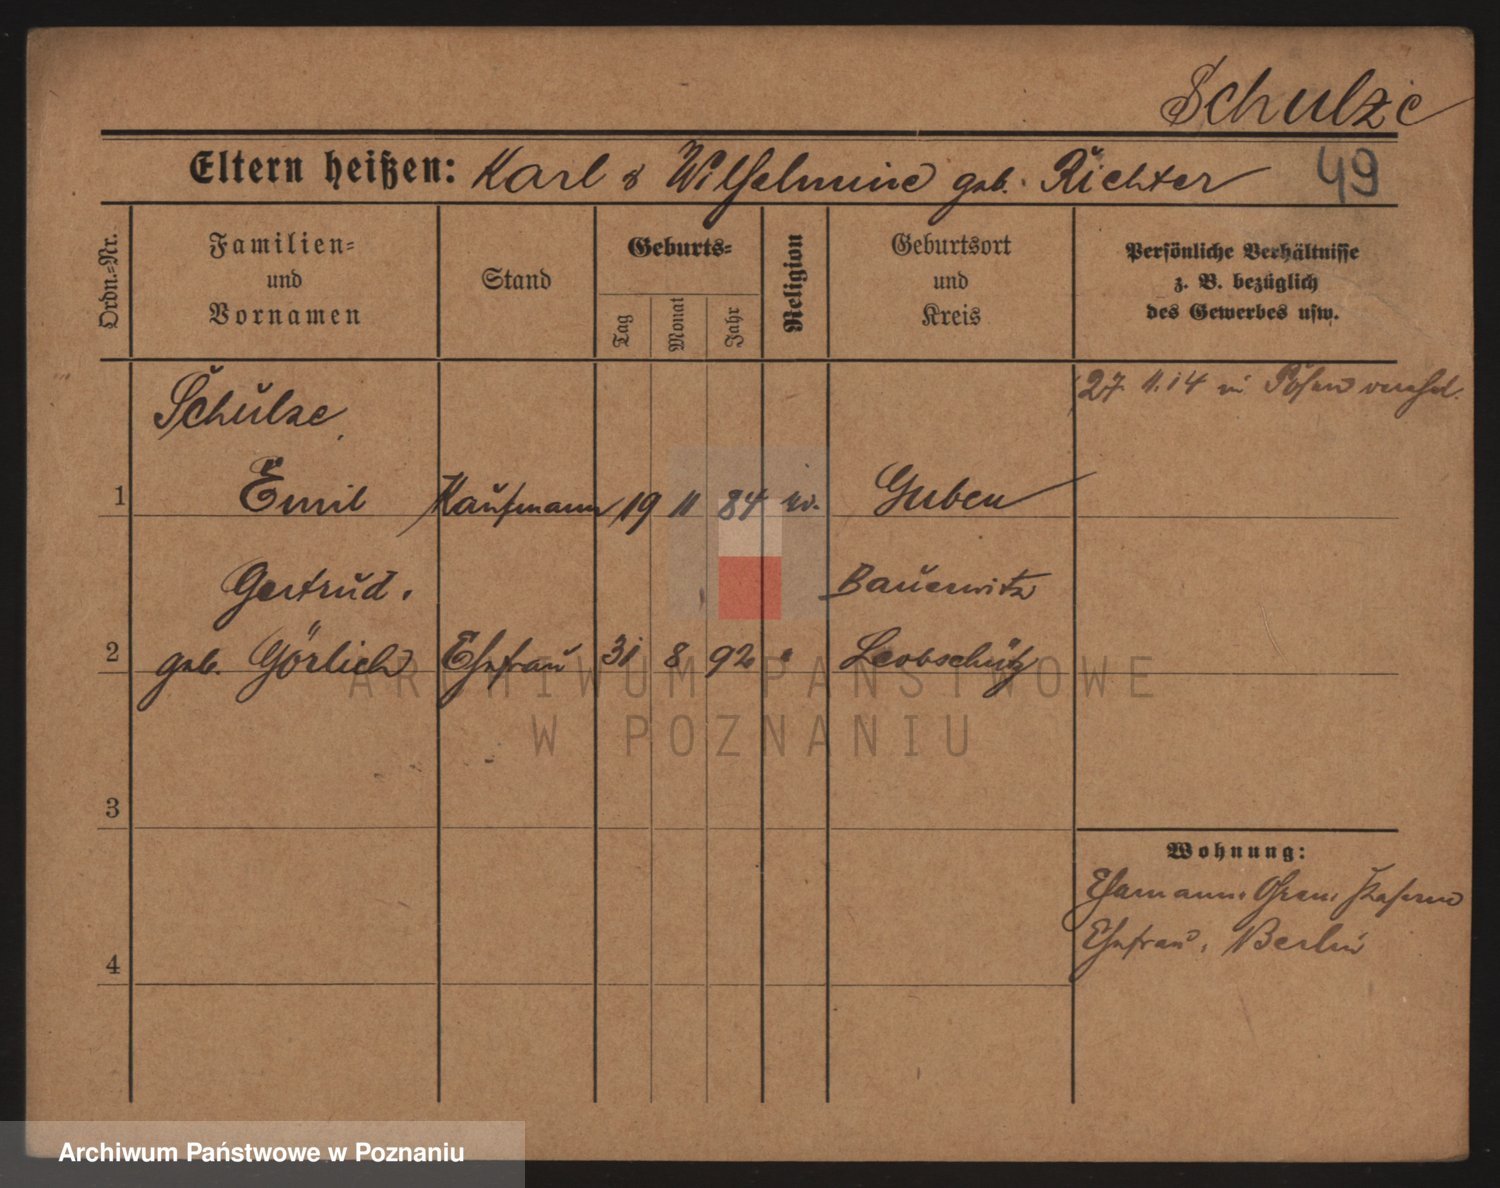 Schulze
Eltern heißen: Karl & Wilhelmine geb. Richter 49
Ordn.=Nr.
Familien=
und
Vornamen
Stand
Geburts=
Tag
Monat
Jahr
Religion
Geburtsort
und
Kreis
Persönliche Verhältnisse
z. B. bezüglich
des Gewerbes usw.
27. 11. 14 in Posen verehel.
Schulze
1 Emil Kaufmann 19 11 84 Guben
Gertrud. Bauerwitz
2 geb. Görlich Ehefrau 31 8 92 Leobschütz
ARCHIWUM PAŃSTWOWE
W POZNANIU
3
Wohnung:
Ehemann: Gren. Kaserne
Ehefrau: Berlin
4
Archiwum Państwowe w Poznaniu